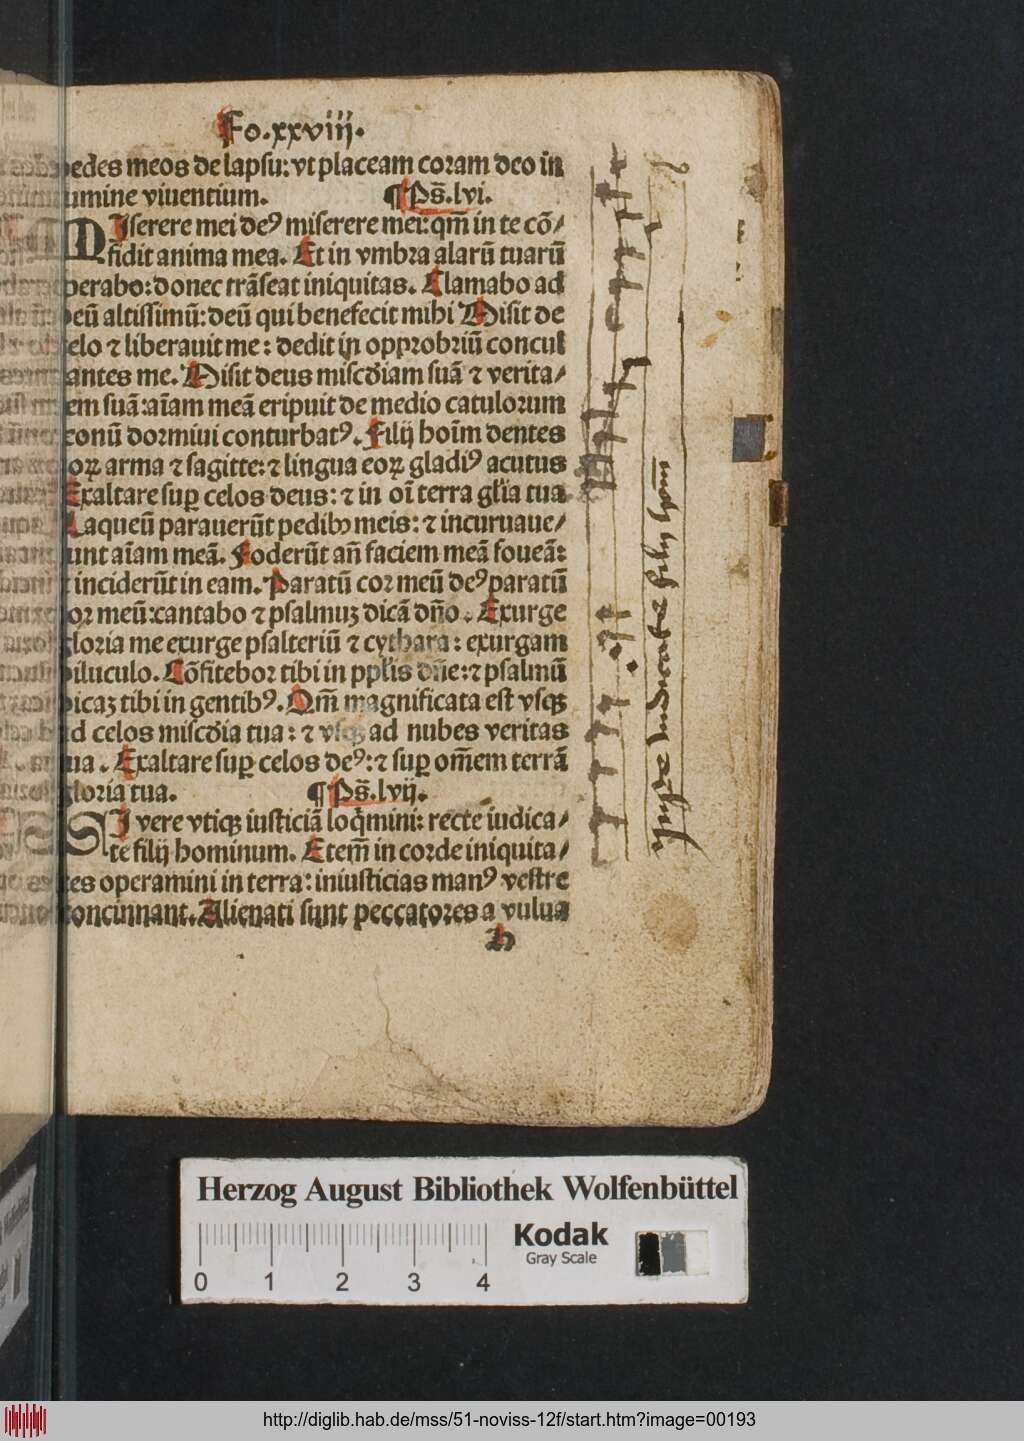 Fo.xxviij.
pedes meos de lapsu: vt placeam coram deo in
lumine viuentium. ¶ Ps̄.lvi.
MIserere mei deꝰ miserere mei: qm̄ in te cō/
fidit anima mea. Et in vmbra alarū tuarū
sperabo: donec trāseat iniquitas. Clamabo ad
deū altissimū: deū qui benefecit mihi Misit de
celo ⁊ liberauit me: dedit in opprobriū concul
cantes me. Misit deus miscd̄iam suā ⁊ verita/
tem suā: aīam meā eripuit de medio catulorum
leonū dormiui conturbatꝰ. Filij hoīm dentes
eoꝝ arma ⁊ sagitte: ⁊ lingua eoꝝ gladiꝰ acutus
Exaltare suꝑ celos deus: ⁊ in oī terra gl̄ia tua
Laqueū parauerūt pedibꝰ meis: ⁊ incuruaue/
runt aīam meā. Foderūt añ faciem meā foueā:
⁊ inciderūt in eam. Paratū cor meū deꝰ paratū
cor meū: cantabo ⁊ psalmuꝫ dicā dño. Exurge
gloria mea exurge psalteriū ⁊ cythara: exurgam
diluculo. Cōfitebor tibi in ppl̄is dñe: ⁊ psalmū
dicaꝫ tibi in gentibꝰ. Qm̄ magnificata est vsqꝫ
ad celos miscd̄ia tua: ⁊ vsqꝫ ad nubes veritas
tua. Exaltare suꝑ celos deꝰ: ⁊ suꝑ om̄em terrā
gloria tua. ¶ Ps̄.lvij.
SI vere vtiqꝫ iusticiā loq̄mini: recte iudica/
te filij hominum. Etem̄ in corde iniquita/
tes operamini in terra: iniusticias manꝰ vestre
concinnant. Alienati sunt peccatores a vulua
h
Herzog August Bibliothek Wolfenbüttel
0 1 2 3 4
Kodak
Gray Scale
http://diglib.hab.de/mss/51-noviss-12f/start.htm?image=00193